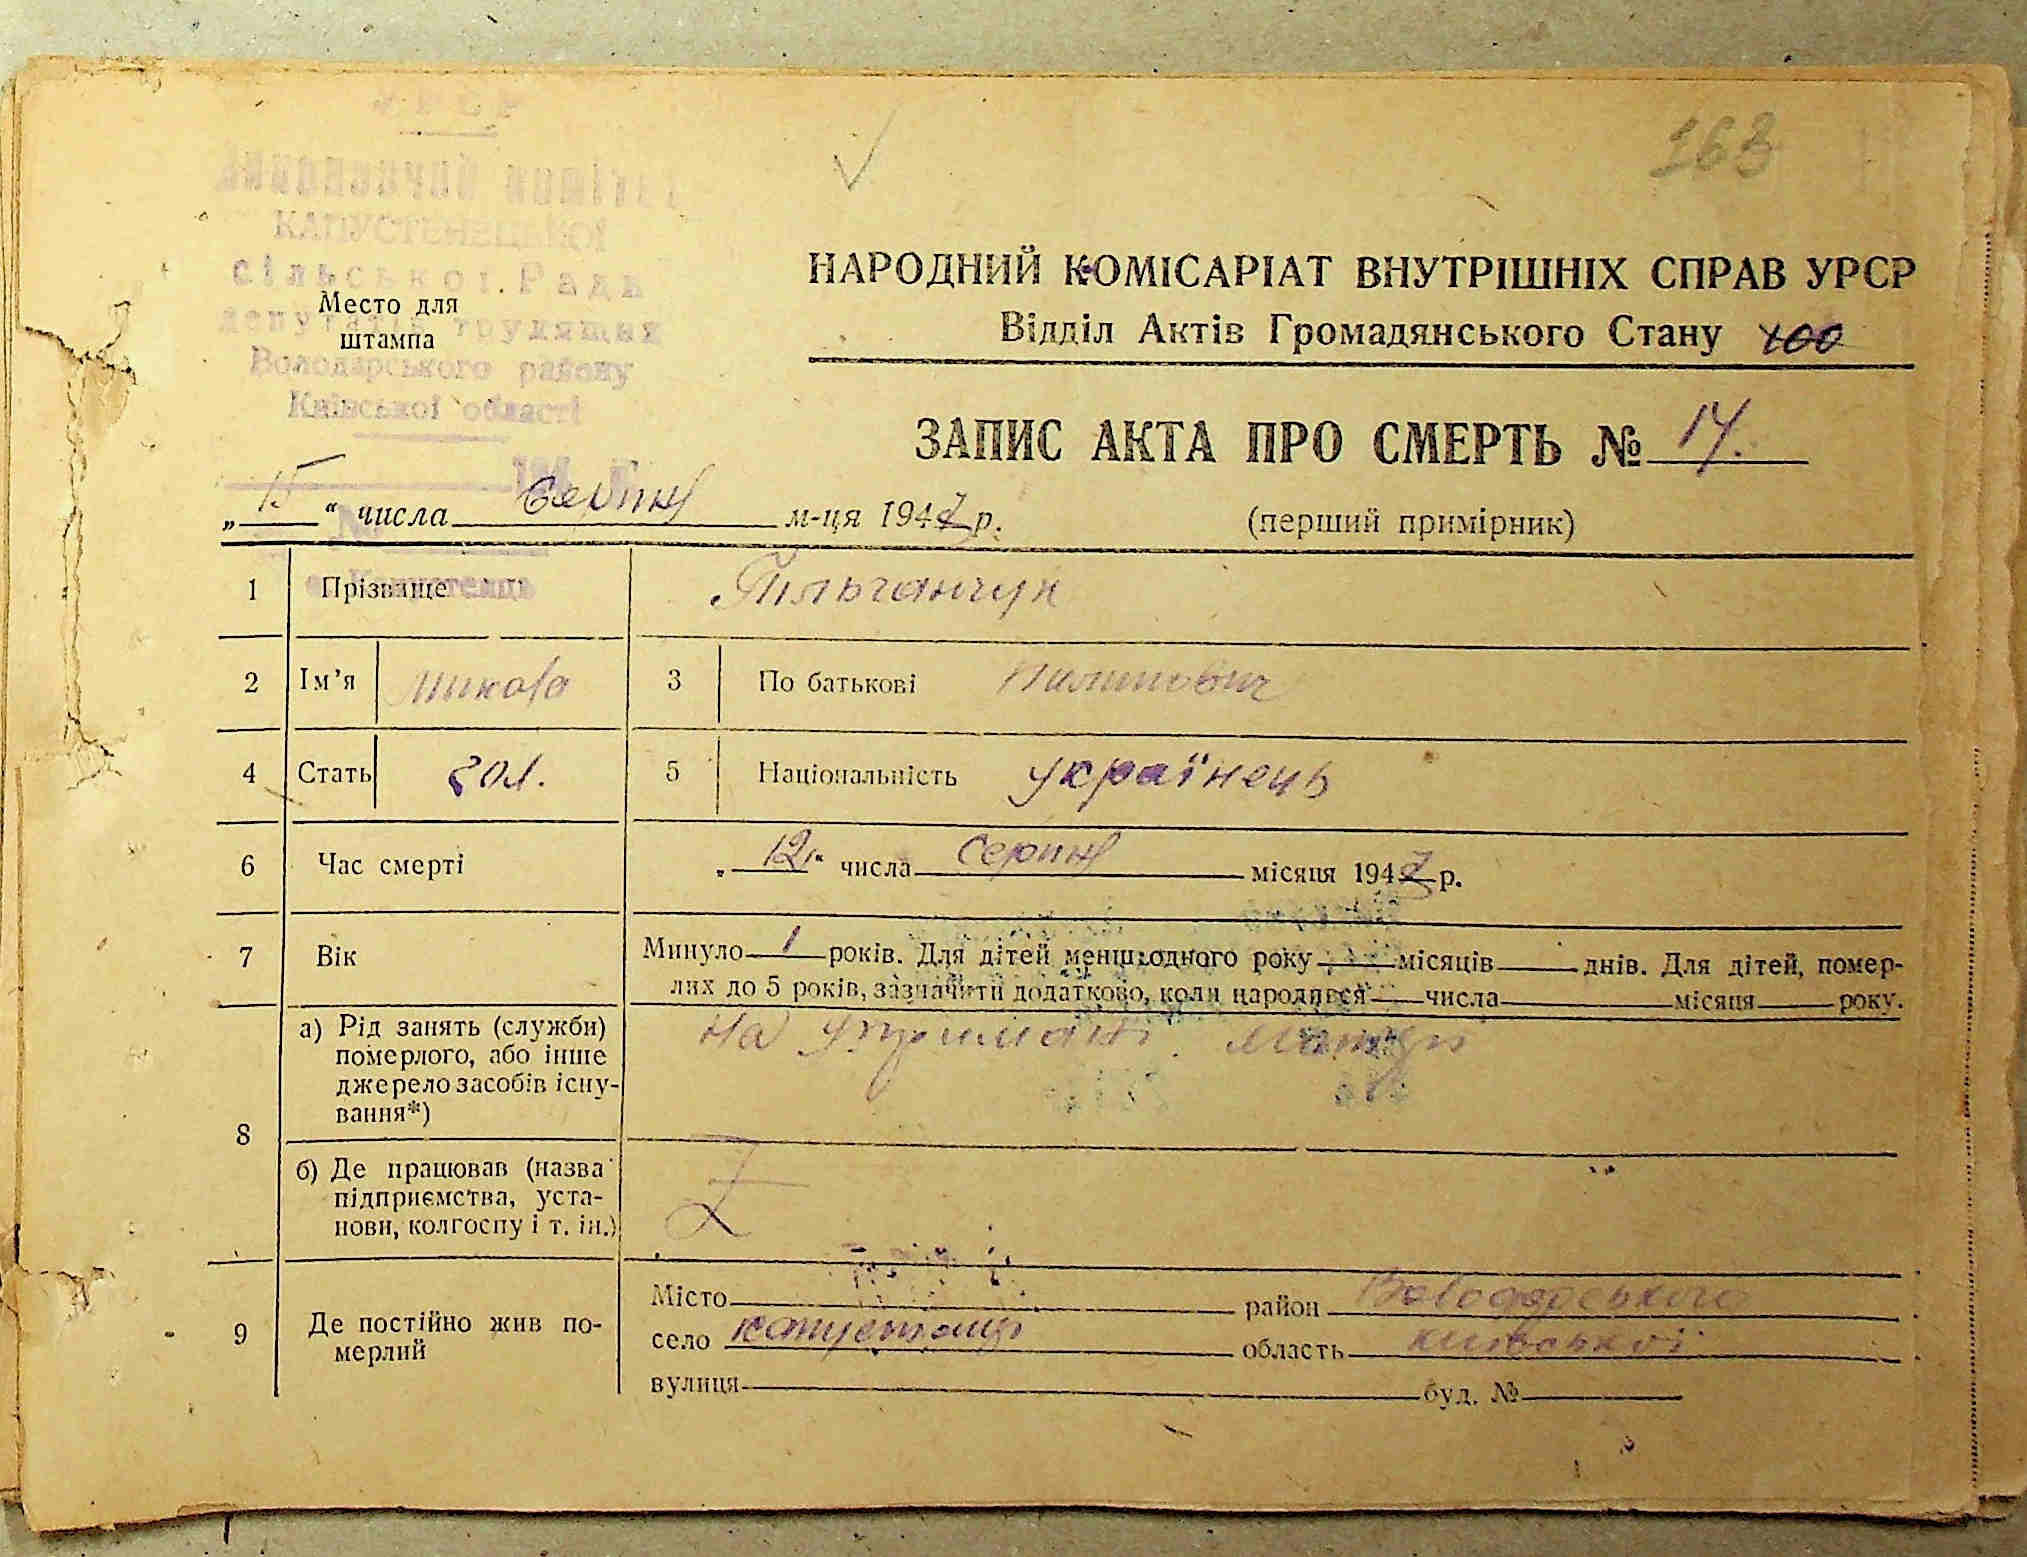 УРСР
163
Виконавчий комітет
КАПУСТЕНЕЦЬКОЇ
сільської Ради
депутатів трудящих
Володарського району
Київської області
Место для
штампа
НАРОДНИЙ КОМІСАРІАТ ВНУТРІШНІХ СПРАВ УРСР
Відділ Актів Громадянського Стану 100
ЗАПИС АКТА ПРО СМЕРТЬ № 14.
„ 15 “ числа Серпня м-ця 1947 р.
(перший примірник)
1 Прізвище
2 Ім’я Микола 3 По батькові
4 Стать чол. 5 Національність українець
6 Час смерті „ 12 “ числа Серпня місяця 1947 р.
7 Вік Минуло 1 років. Для дітей менш одного року місяців днів. Для дітей, помер-
лих до 5 років, зазначити додатково, коли народився числа місяця року.
8 а) Рід занять (служби)
померлого, або інше
джерело засобів існу-
вання*)
На утриманні матері
б) Де працював (назва
підприємства, уста-
нови, колгоспу і т. ін.)
9 Де постійно жив по-
мерлий
Місто район Володарського
село капустинці область київської
вулиця буд. №